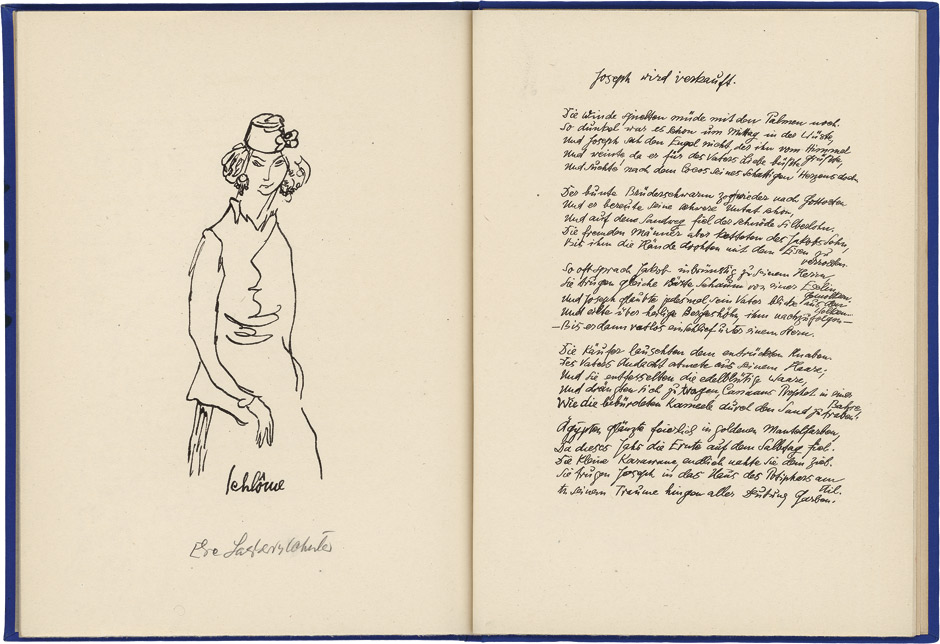 Schlôme
Joseph wird verkauft.
Die Winde spielten müde mit den Palmen noch.
So dunkel war es schon um Mittag in der Wüste,
Und Joseph sah den Engel nicht, der ihn vom Himmel
grüßte,
Und weinte, da er für des Vaters Liebe büßte
Und suchte nach dem Cocos seines schattigen Herzens doch.
Der bunte Brüderschwarm zog wieder nach Gottosten
Und er bereute seine schwere Untat schon,
Und auf dem Sandweg fiel der schnöde Silberlohn.
Die fremden Männer aber ketteten des Jakobs Sohn,
Bis ihm die Häute drohten mit dem Eisen zu
verrosten.
So oft sprach Jakob inbrünstig zu seinem Herrn,
Sie trugen gleiche Bärte, Schaum von einer Eselin
gemolken.
Und Joseph glaubte jedesmal, sein Vater blicke aus den
Wolken
Und eilte über heilige Bergeshöhn ihm nachzufolgen —
— Bis er dann ratlos einschlief unter einem Stern.
Die Käufer lauschten dem entrückten Knaben.
Des Vaters Andacht atmete aus seinem Haare;
Und sie entfesselten die edelblütige Waare,
Und drängten sich zu tragen, Canaans Prophet in einer
Bahre,
Wie die bebürdeten Kameele durch den Sand zu traben.
Ägypten glänzte feierlich in goldenen Mantelfarben,
Da dieses Jahr die Ernte auf dem Salbtag fiel.
Die kleine Karawane, endlich nahte sie dem Ziel.
Sie trugen Joseph in das Haus des Potiphars am
Nil.
In seinem Traume hingen aller Deutung Garben.